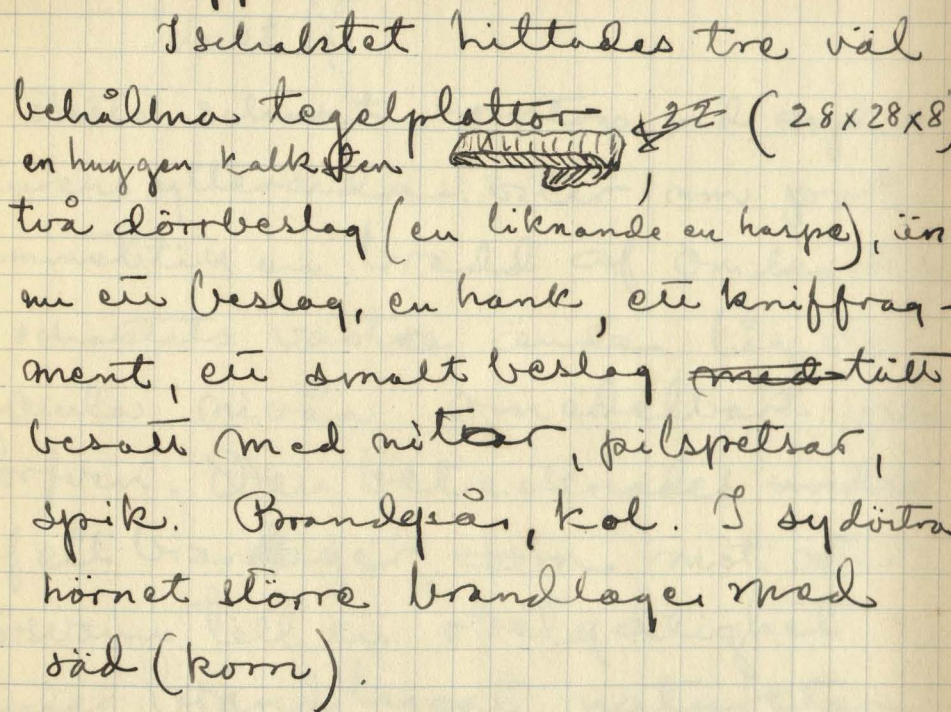 I schaktet hittades tre väl
behållna tegelplattor (28x28x8)
en huggen kalksten ,
två dörrbeslag (en liknande en haspe), än
nu ett beslag, en hank, ett kniffrag-
ment, ett smalt beslag med tätt
besatt med nitar, pilspetsar,
spik. Brandspår, kol. I sydöstra
hörnet större brandlager med
säd (korn).